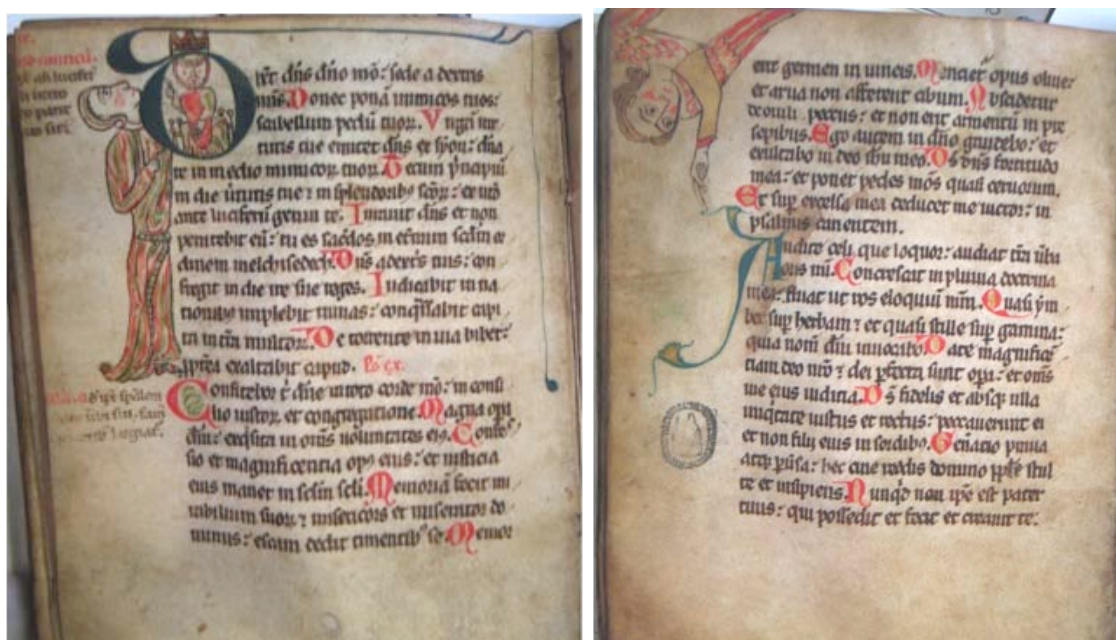 ixit dns dno mo: sede a dextris
mis. Donec pona inimicos tuos:
scabellum pedu tuor. Virga vir
tutis tue emittet dns ex syon: dna
re in medio inimicor tuor. Tecum pncipiu
in die virtutis tue in splendorib scor: ex uto
ante luciferu genui te. Iurauit dns et non
penitebit eu: tu es sacdos in etnum scdm or
dinem melchisedech. Dns a dextis tuis: con
fregit in die ire sue reges. Iudicabit in na
tionib implebit ruinas: conqssabit capi
ta in tra multor. De torrente in uia bibet:
ppterea exaltabit caput. Ps cx.
Confitebor t dne in toto corde mo: in consi
lio iustor et congregatione. Magna opa
dni: exqsita in oms uoluntates eis. Confes
sio et magnificentia opus eius: et iusticia
eius manet in sclm scli. Memoria fecit mi
rabilium suor misericors et miserator do
minus: escam dedit timentib se. Memor
ent germen in uineis. Mentiet opus oliue:
et arua non afferent cibum. Abscidetur
de ouili pecus: et non erit armentu in pre
sepibus. Ego autem in dno gaudebo: et
exultabo in deo ihu meo. Ds dns fortitudo
mea: et ponet pedes mos quasi ceruorum.
Et sup excelsa mea deducet me uictor: in
psalmis canentem.
Audite celi que loquor: audiat tra uba
oris mi. Concrescat in pluuia doctrina
mea: fluat ut ros eloquiu mm. Quasi ym
ber sup herbam et quasi stille sup gramina:
quia nom dni inuocabo. Date magnifice
tiam deo nro dei pfecta sunt opa: et oms
uie eius iudicia. Ds fidelis et absq ulla
iniqtate iustus et rectus: peccauerunt ei
et non filii eius in sordib. Genatio praua
atq puersa: hec cine reddis domino pple stul
te et insipiens. Nunqd non ipe est pater
tuus: qui possedit et fecit et creauit te.